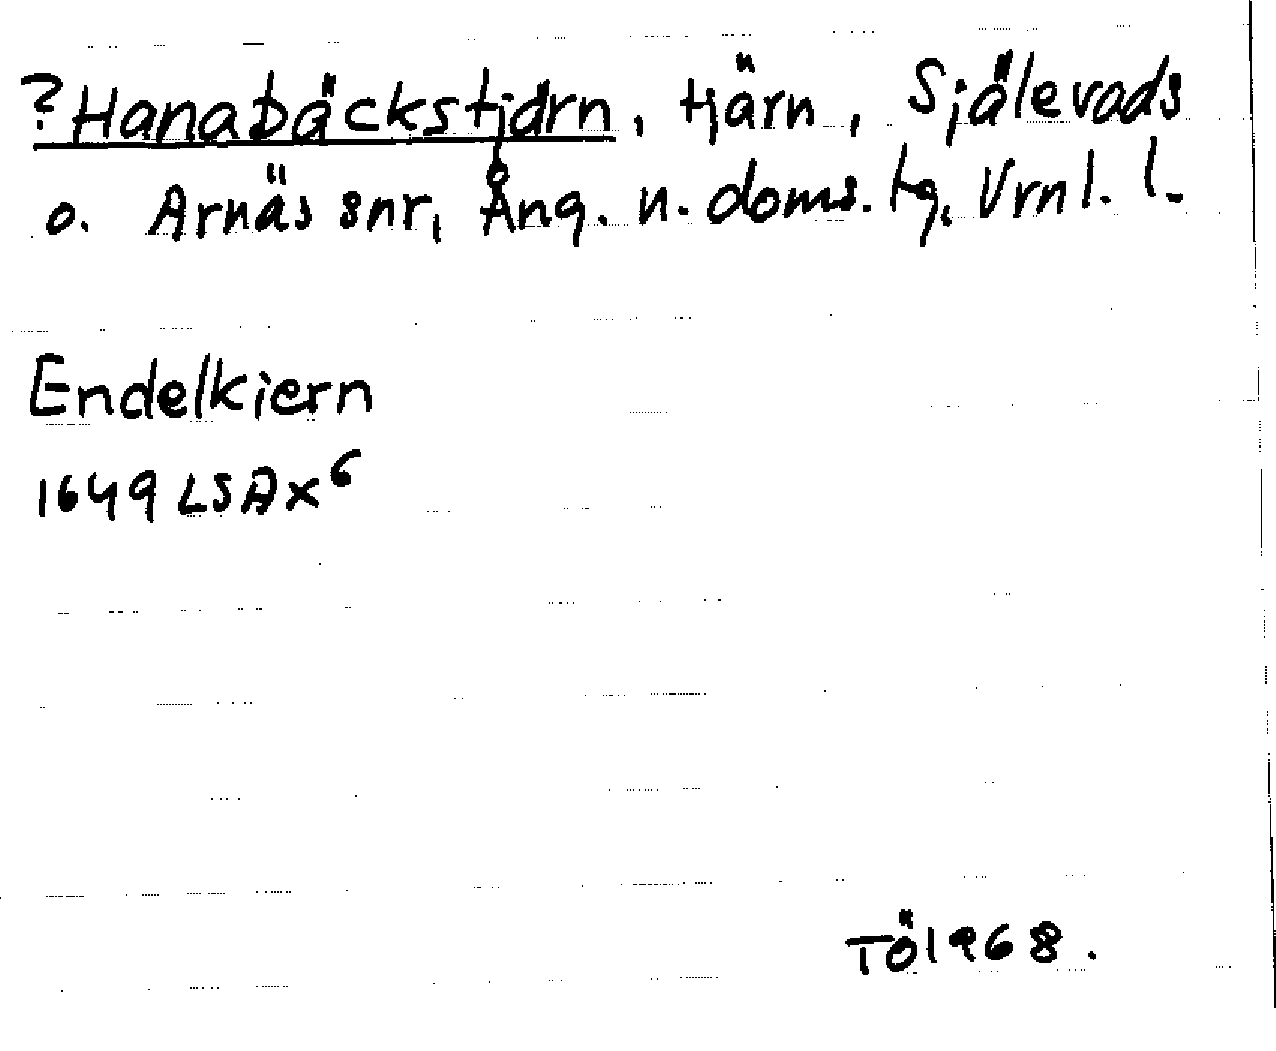 ?Hanabäckstjärn, tjärn, Själevads
o. Arnäs snr, Ång. n. doms. tg, Vrnl. l.
Endelkiern
1649 LSA x⁶
TÖ 1968.